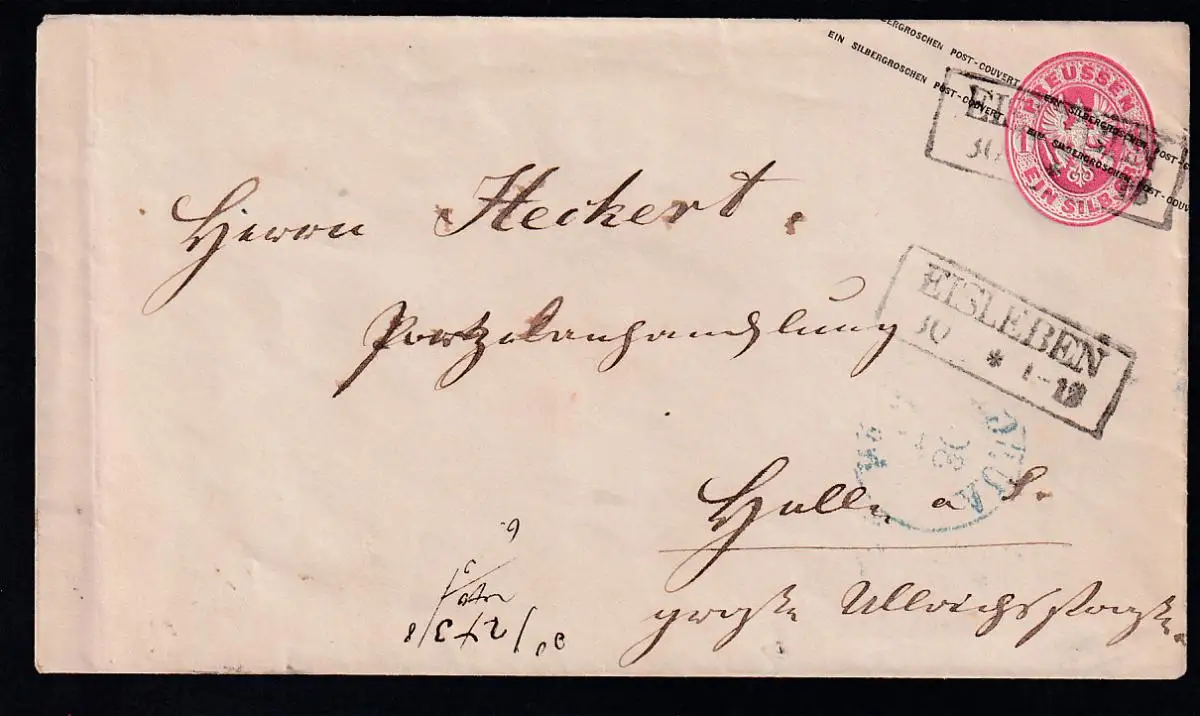 EIN SILBERGROSCHEN POST-COUVERT EIN SILBERGROSCHEN POST-COUVERT
EIN SILBERGROSCHEN POST-COUVERT EIN SILBERGROSCHEN POST-COUVERT
PREUSSEN
1
EIN SILB
30 *
Herrn Heckert.
Porzelanhandlung
EISLEBEN
30 * 1-12
Halle a S.
große Ullrichsstraße.